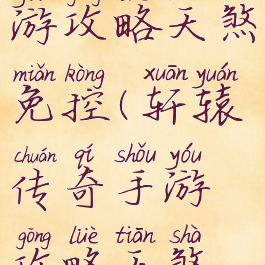 游攻略天煞
miǎn kòng xuān yuán
免控(轩辕
chuán qí shǒu yóu
传奇手游
gōng lüè tiān shà
攻略天煞